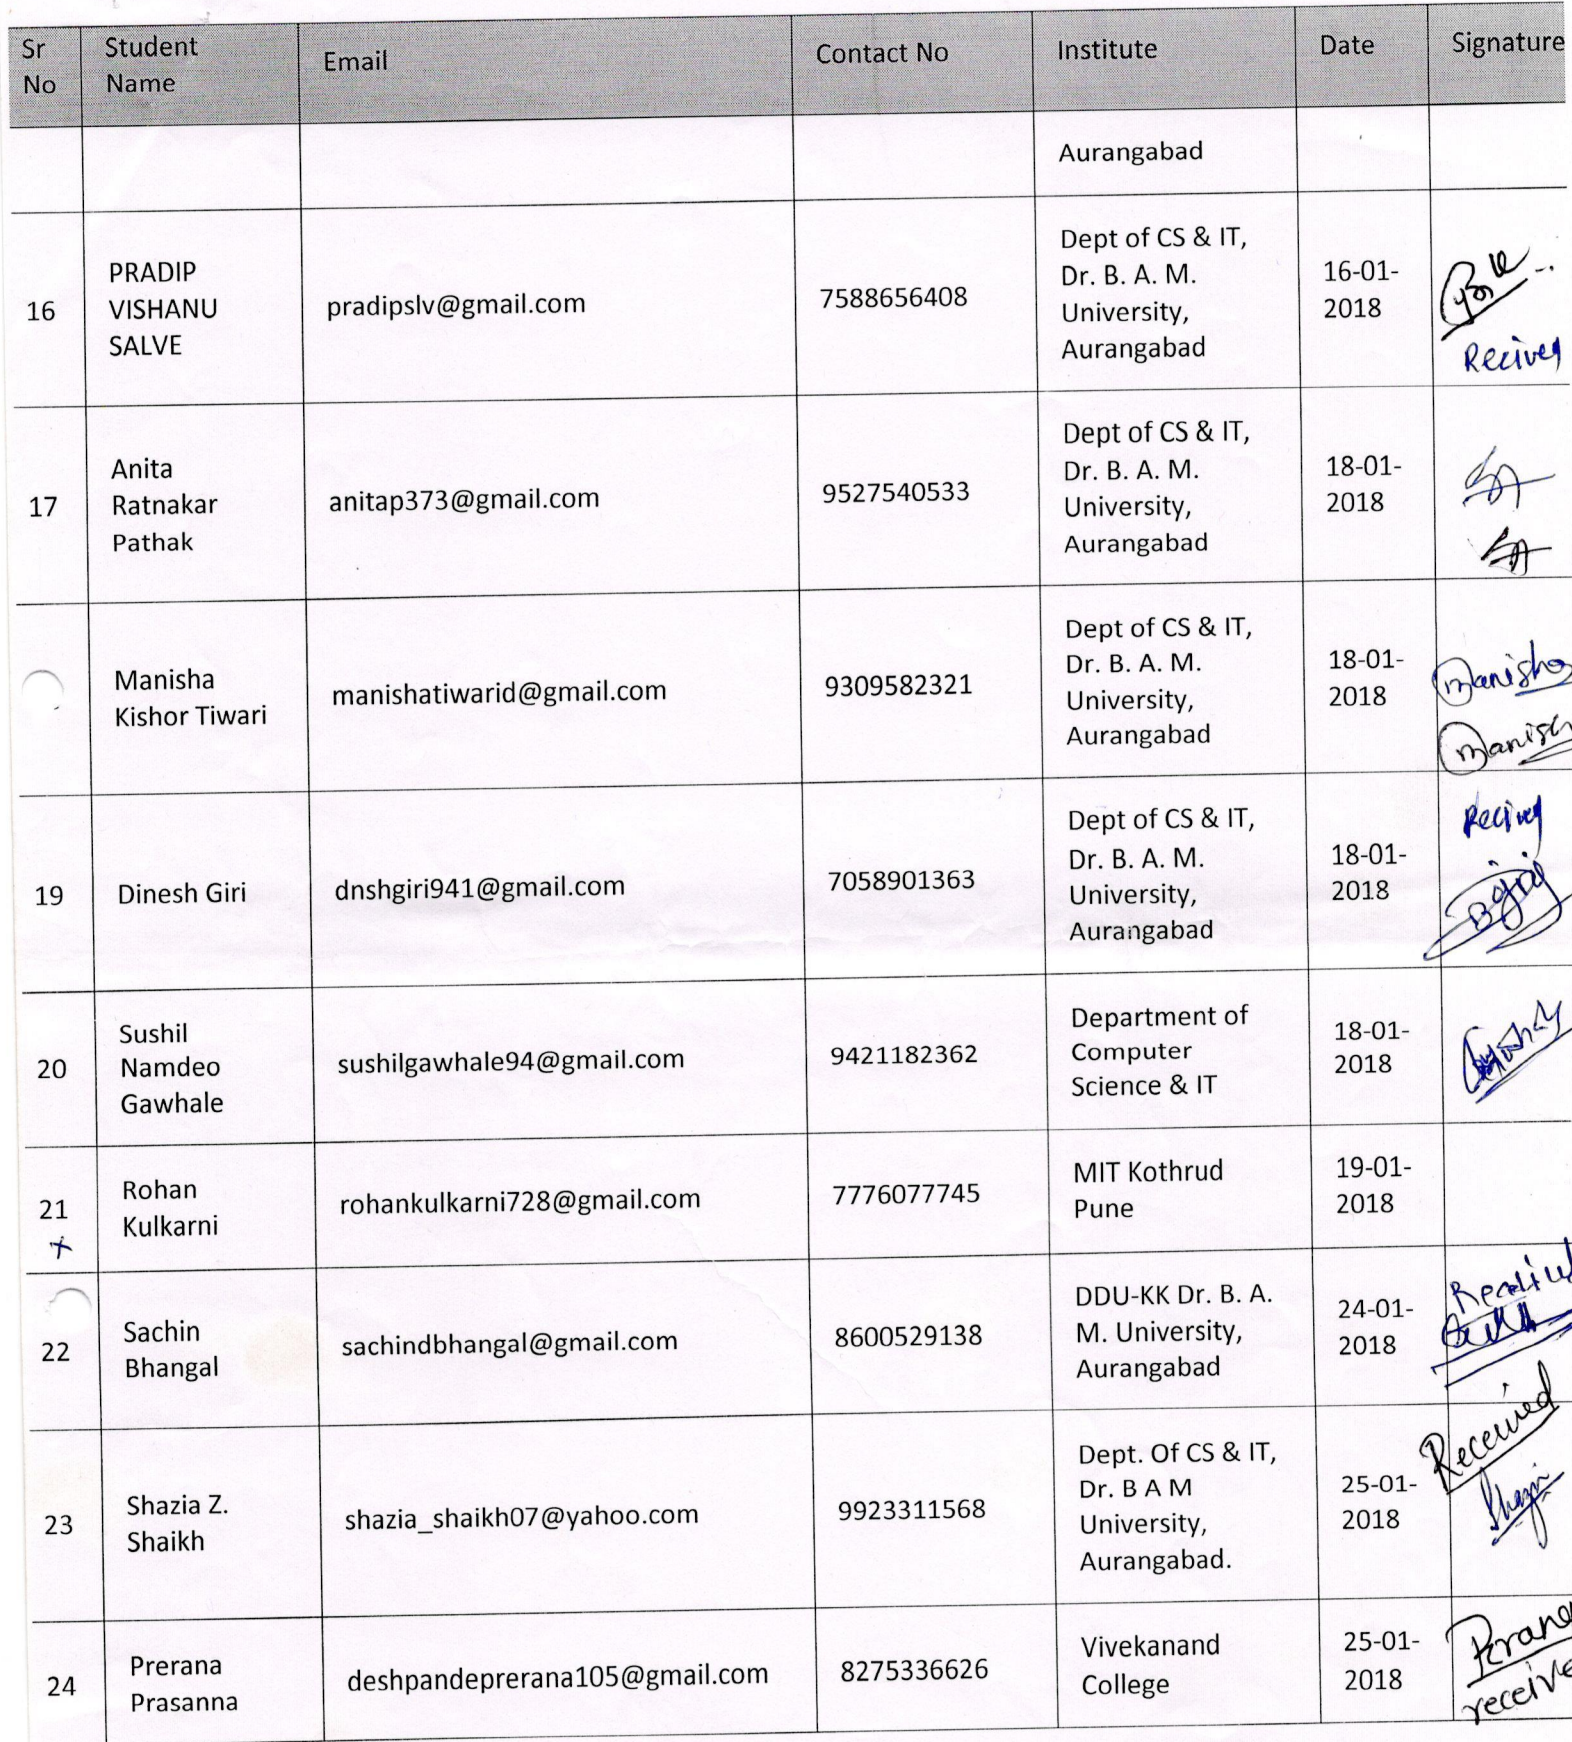 Sr No | Student Name | Email | Contact No | Institute | Date | Signature
Aurangabad
16 | PRADIP VISHANU SALVE | pradipslv@gmail.com | 7588656408 | Dept of CS & IT, Dr. B. A. M. University, Aurangabad | 16-01-2018 | Recived
17 | Anita Ratnakar Pathak | anitap373@gmail.com | 9527540533 | Dept of CS & IT, Dr. B. A. M. University, Aurangabad | 18-01-2018
Manisha Kishor Tiwari | manishatiwarid@gmail.com | 9309582321 | Dept of CS & IT, Dr. B. A. M. University, Aurangabad | 18-01-2018 | Manisha
19 | Dinesh Giri | dnshgiri941@gmail.com | 7058901363 | Dept of CS & IT, Dr. B. A. M. University, Aurangabad | 18-01-2018 | Recived
20 | Sushil Namdeo Gawhale | sushilgawhale94@gmail.com | 9421182362 | Department of Computer Science & IT | 18-01-2018
21 x | Rohan Kulkarni | rohankulkarni728@gmail.com | 7776077745 | MIT Kothrud Pune | 19-01-2018
22 | Sachin Bhangal | sachindbhangal@gmail.com | 8600529138 | DDU-KK Dr. B. A. M. University, Aurangabad | 24-01-2018
23 | Shazia Z. Shaikh | shazia_shaikh07@yahoo.com | 9923311568 | Dept. Of CS & IT, Dr. B A M University, Aurangabad. | 25-01-2018 | Received
24 | Prerana Prasanna | deshpandeprerana105@gmail.com | 8275336626 | Vivekanand College | 25-01-2018 | receive